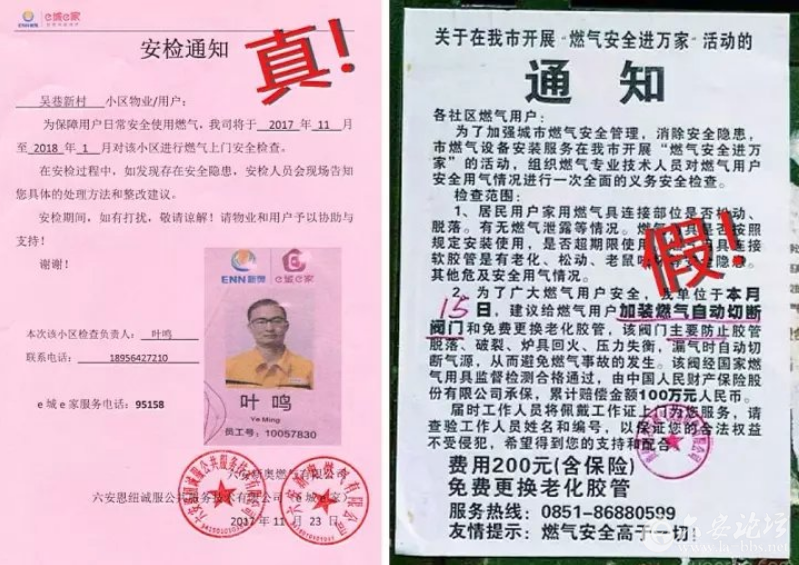 ENN新奥 e城e家
安检通知
真!
吴巷新村 小区物业/用户:
为保障用户日常安全使用燃气,我司将于 2017 年 11 月
至 2018 年 1 月对该小区进行燃气上门安全检查。
在安检过程中,如发现存在安全隐患,安检人员会现场告知
您具体的处理方法和整改建议。
安检期间,如有打扰,敬请谅解!请物业和用户予以协助与
支持!
谢谢!
ENN新奥 e城e家
本次该小区检查负责人: 叶鸣
联系电话: 18956427210
e 城 e 家服务电话: 95158
叶 鸣
Ye Ming
员工号: 10057830
六安新奥燃气有限公司
六安恩纽诚服公共服务技术有限公司(e 城 e 家)
2017 年 11 月 23 日
关于在我市开展“燃气安全进万家”活动的
通 知
各社区燃气用户:
为了加强城市燃气安全管理,消除安全隐患,
市燃气设备安装服务在我市开展“燃气安全进万
家”的活动,组织燃气专业技术人员对燃气用户
安全用气情况进行一次全面的义务安全检查。
检查范围:
1、居民用户家用燃气具连接部位是否松动、
脱落。有无燃气泄露等情况。燃 具是否按照
规定安装使用,是否超期限使用 具连接
软胶管是否有老化、松动、老鼠 等安全隐患。
其他危及安全用气情况。
假!
2、为了广大燃气用户安全,我单位于本月
15日,建议给燃气用户加装燃气自动切断
阀门和免费更换老化胶管,该阀门主要防止胶管
脱落、破裂、炉具回火、压力失衡,漏气时自动切
断气源,从而避免燃气事故的发生。该阀经国家燃
气用具监督检测合格通过,由中国人民财产保险股
份有限公司承保,累计赔偿金额100万元人民币。
届时工作人员将佩戴工作证上门为您服务,请
查验工作人员姓名和编号,以保证您的合法权益
不受侵犯,希望得到您的支持和配合。
费用200元(含保险)
免费更换老化胶管
服务热线: 0851-86880599
友情提示: 燃气安全高于一切!
六安论坛